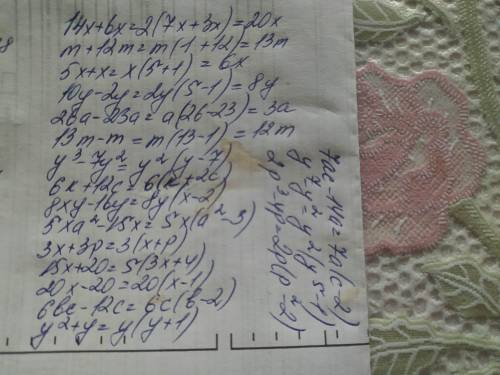 14x+6x=2(7x+3x)=20x
m+12m=m(1+12)=13m
5x+x=x(5+1)=6x
10y-2y=2y(5-1)=8y
26a-23a=a(26-23)=3a
13m-m=m(13-1)=12m
y³-7y²=y²(y-7)
6k+12c=6(k+2c)
8xy-16y=8y(x-2)
5xa²-15x=5x(a²-3)
3x+3p=3(x+p)
15x+20=5(3x+4)
20x-20=20(x-1)
6bc-12c=6c(b-2)
y²+y=y(y+1)
7ac-14a=7a(c-2)
y⁷-y²=y²(y⁵-1)
2p²-4p=2p(p-2)